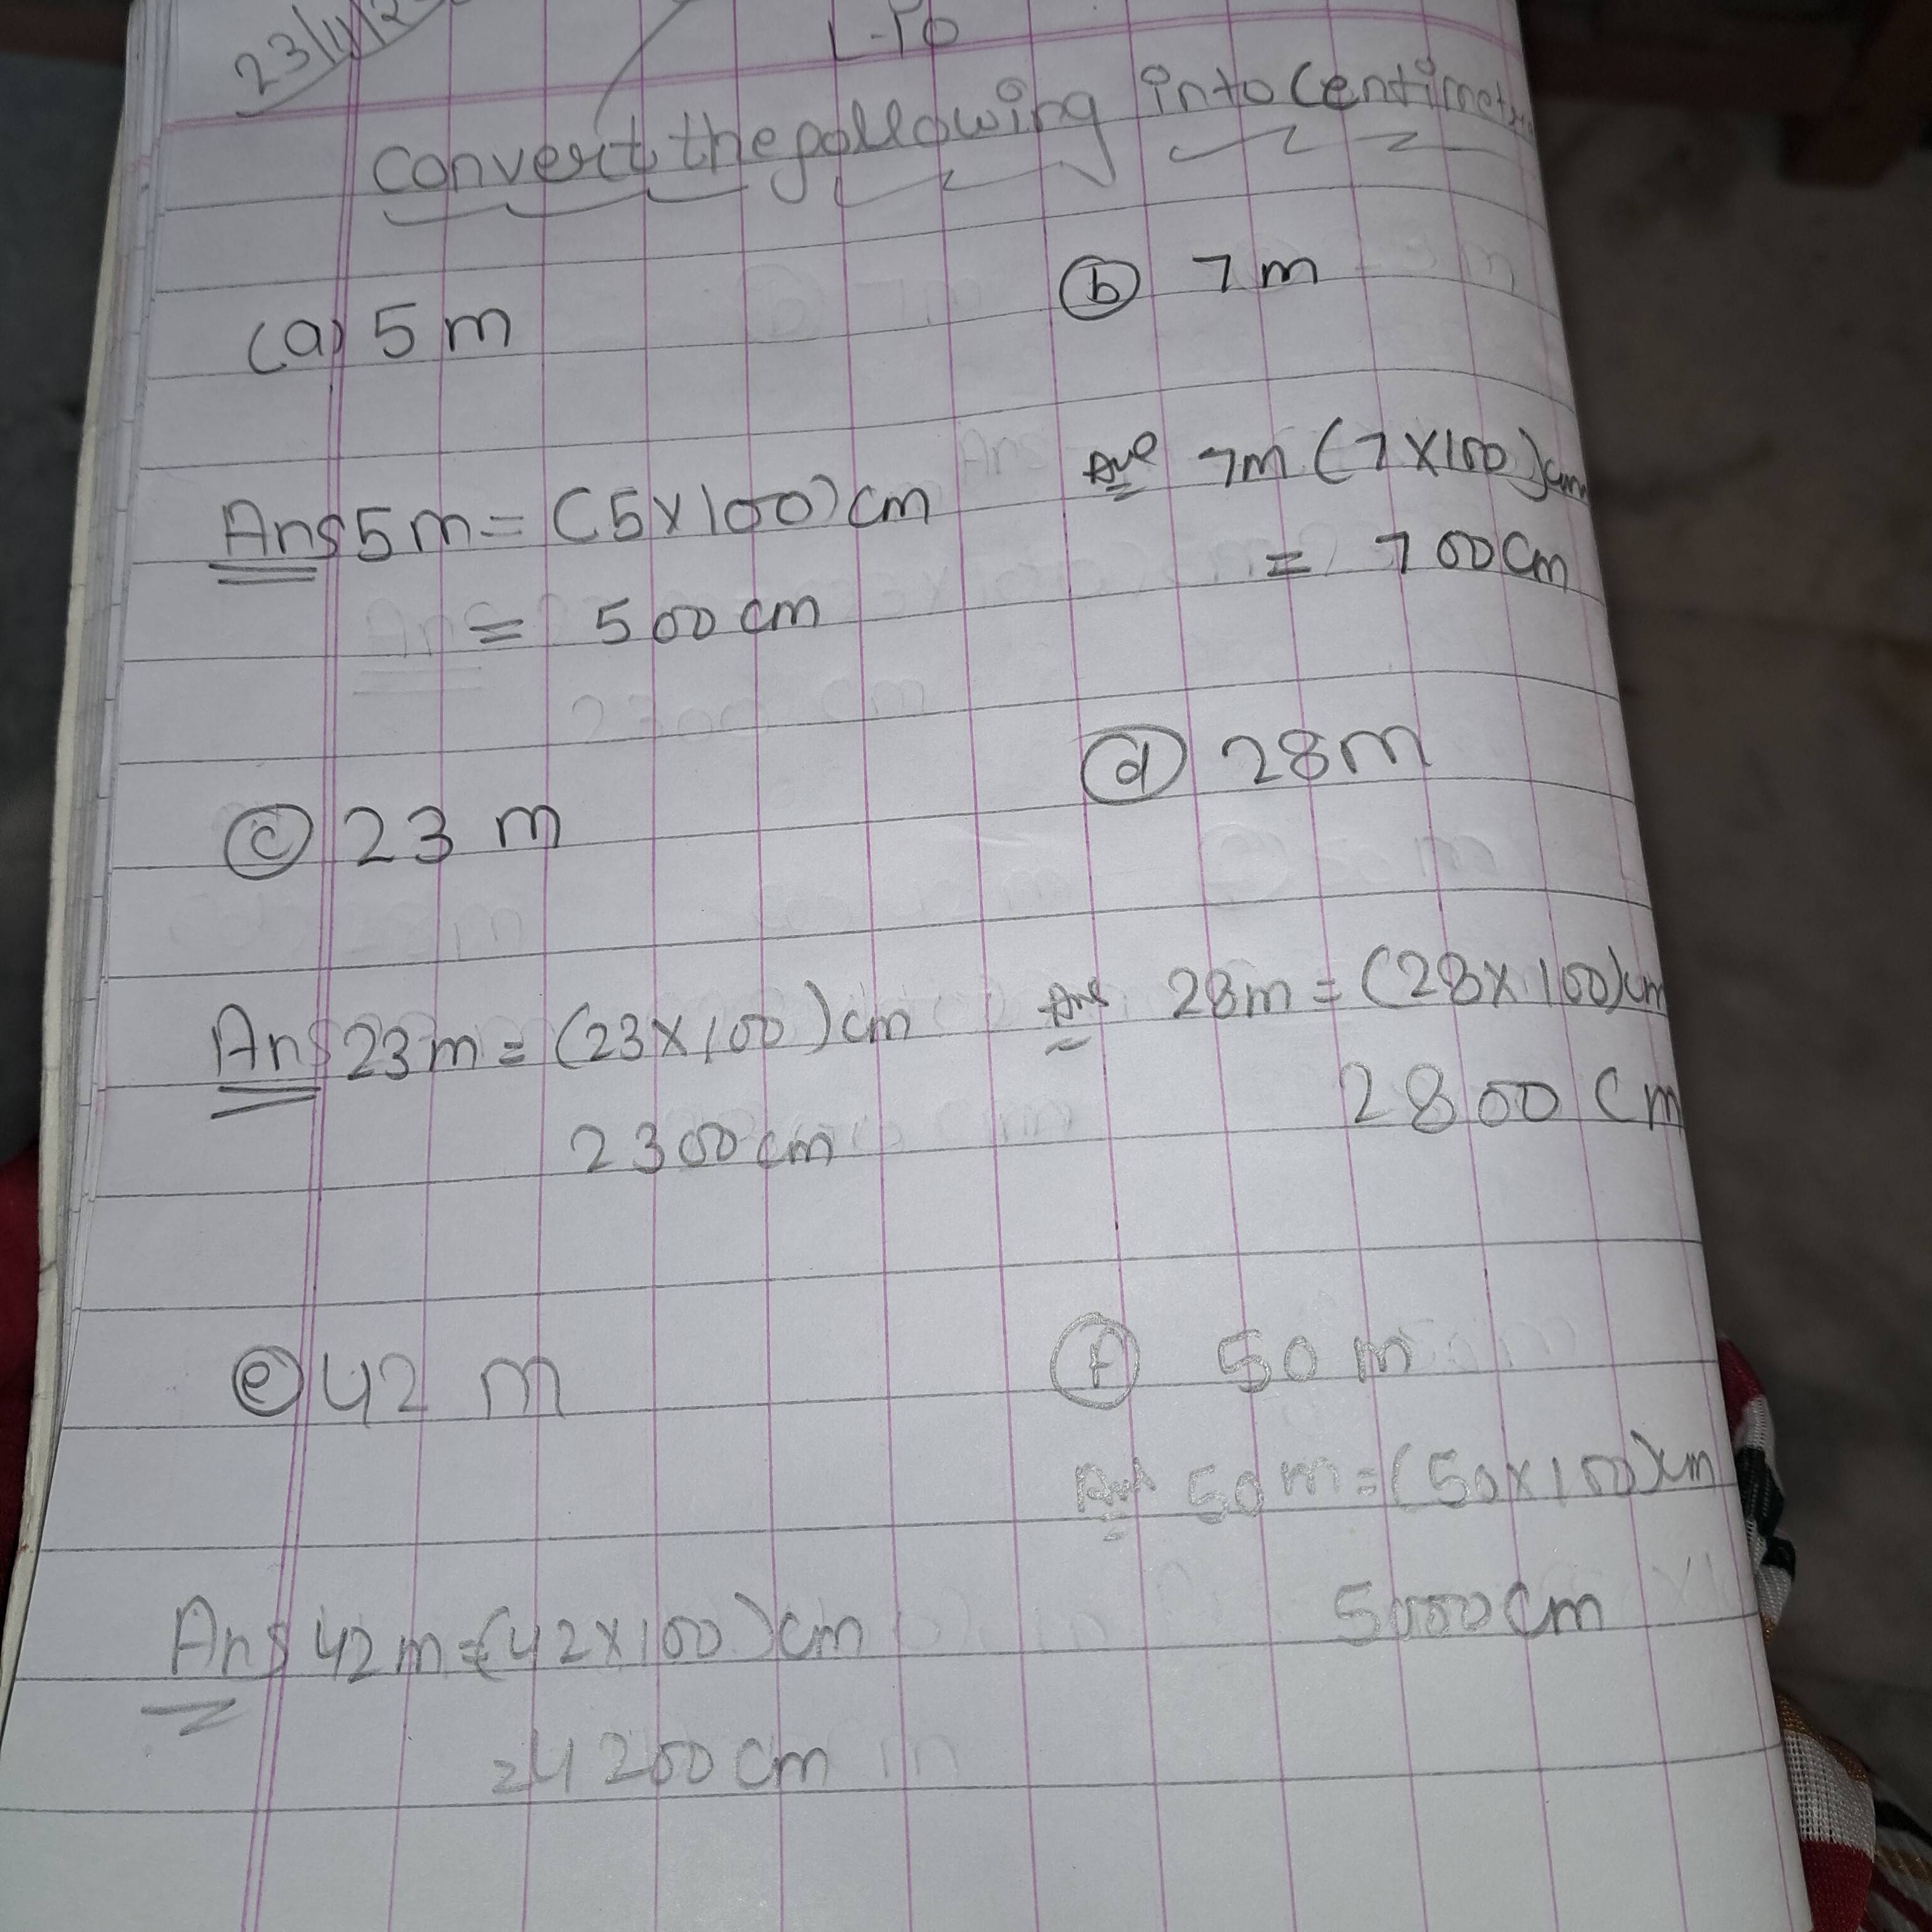 L-10
Convert the following into Centimet
(a) 5 m
(b) 7 m
Ans 5 m = (5×100) cm
= 500 cm
Ans 7m (7×100) cm
= 700 cm
(c) 23 m
(d) 28 m
Ans 23 m = (23×100) cm
2300 cm
Ans 28 m = (28×100) cm
2800 cm
(e) 42 m
(f) 50 m
Ans 50 m = (50×100) cm
5000 cm
Ans 42 m = (42×100) cm
= 4200 cm